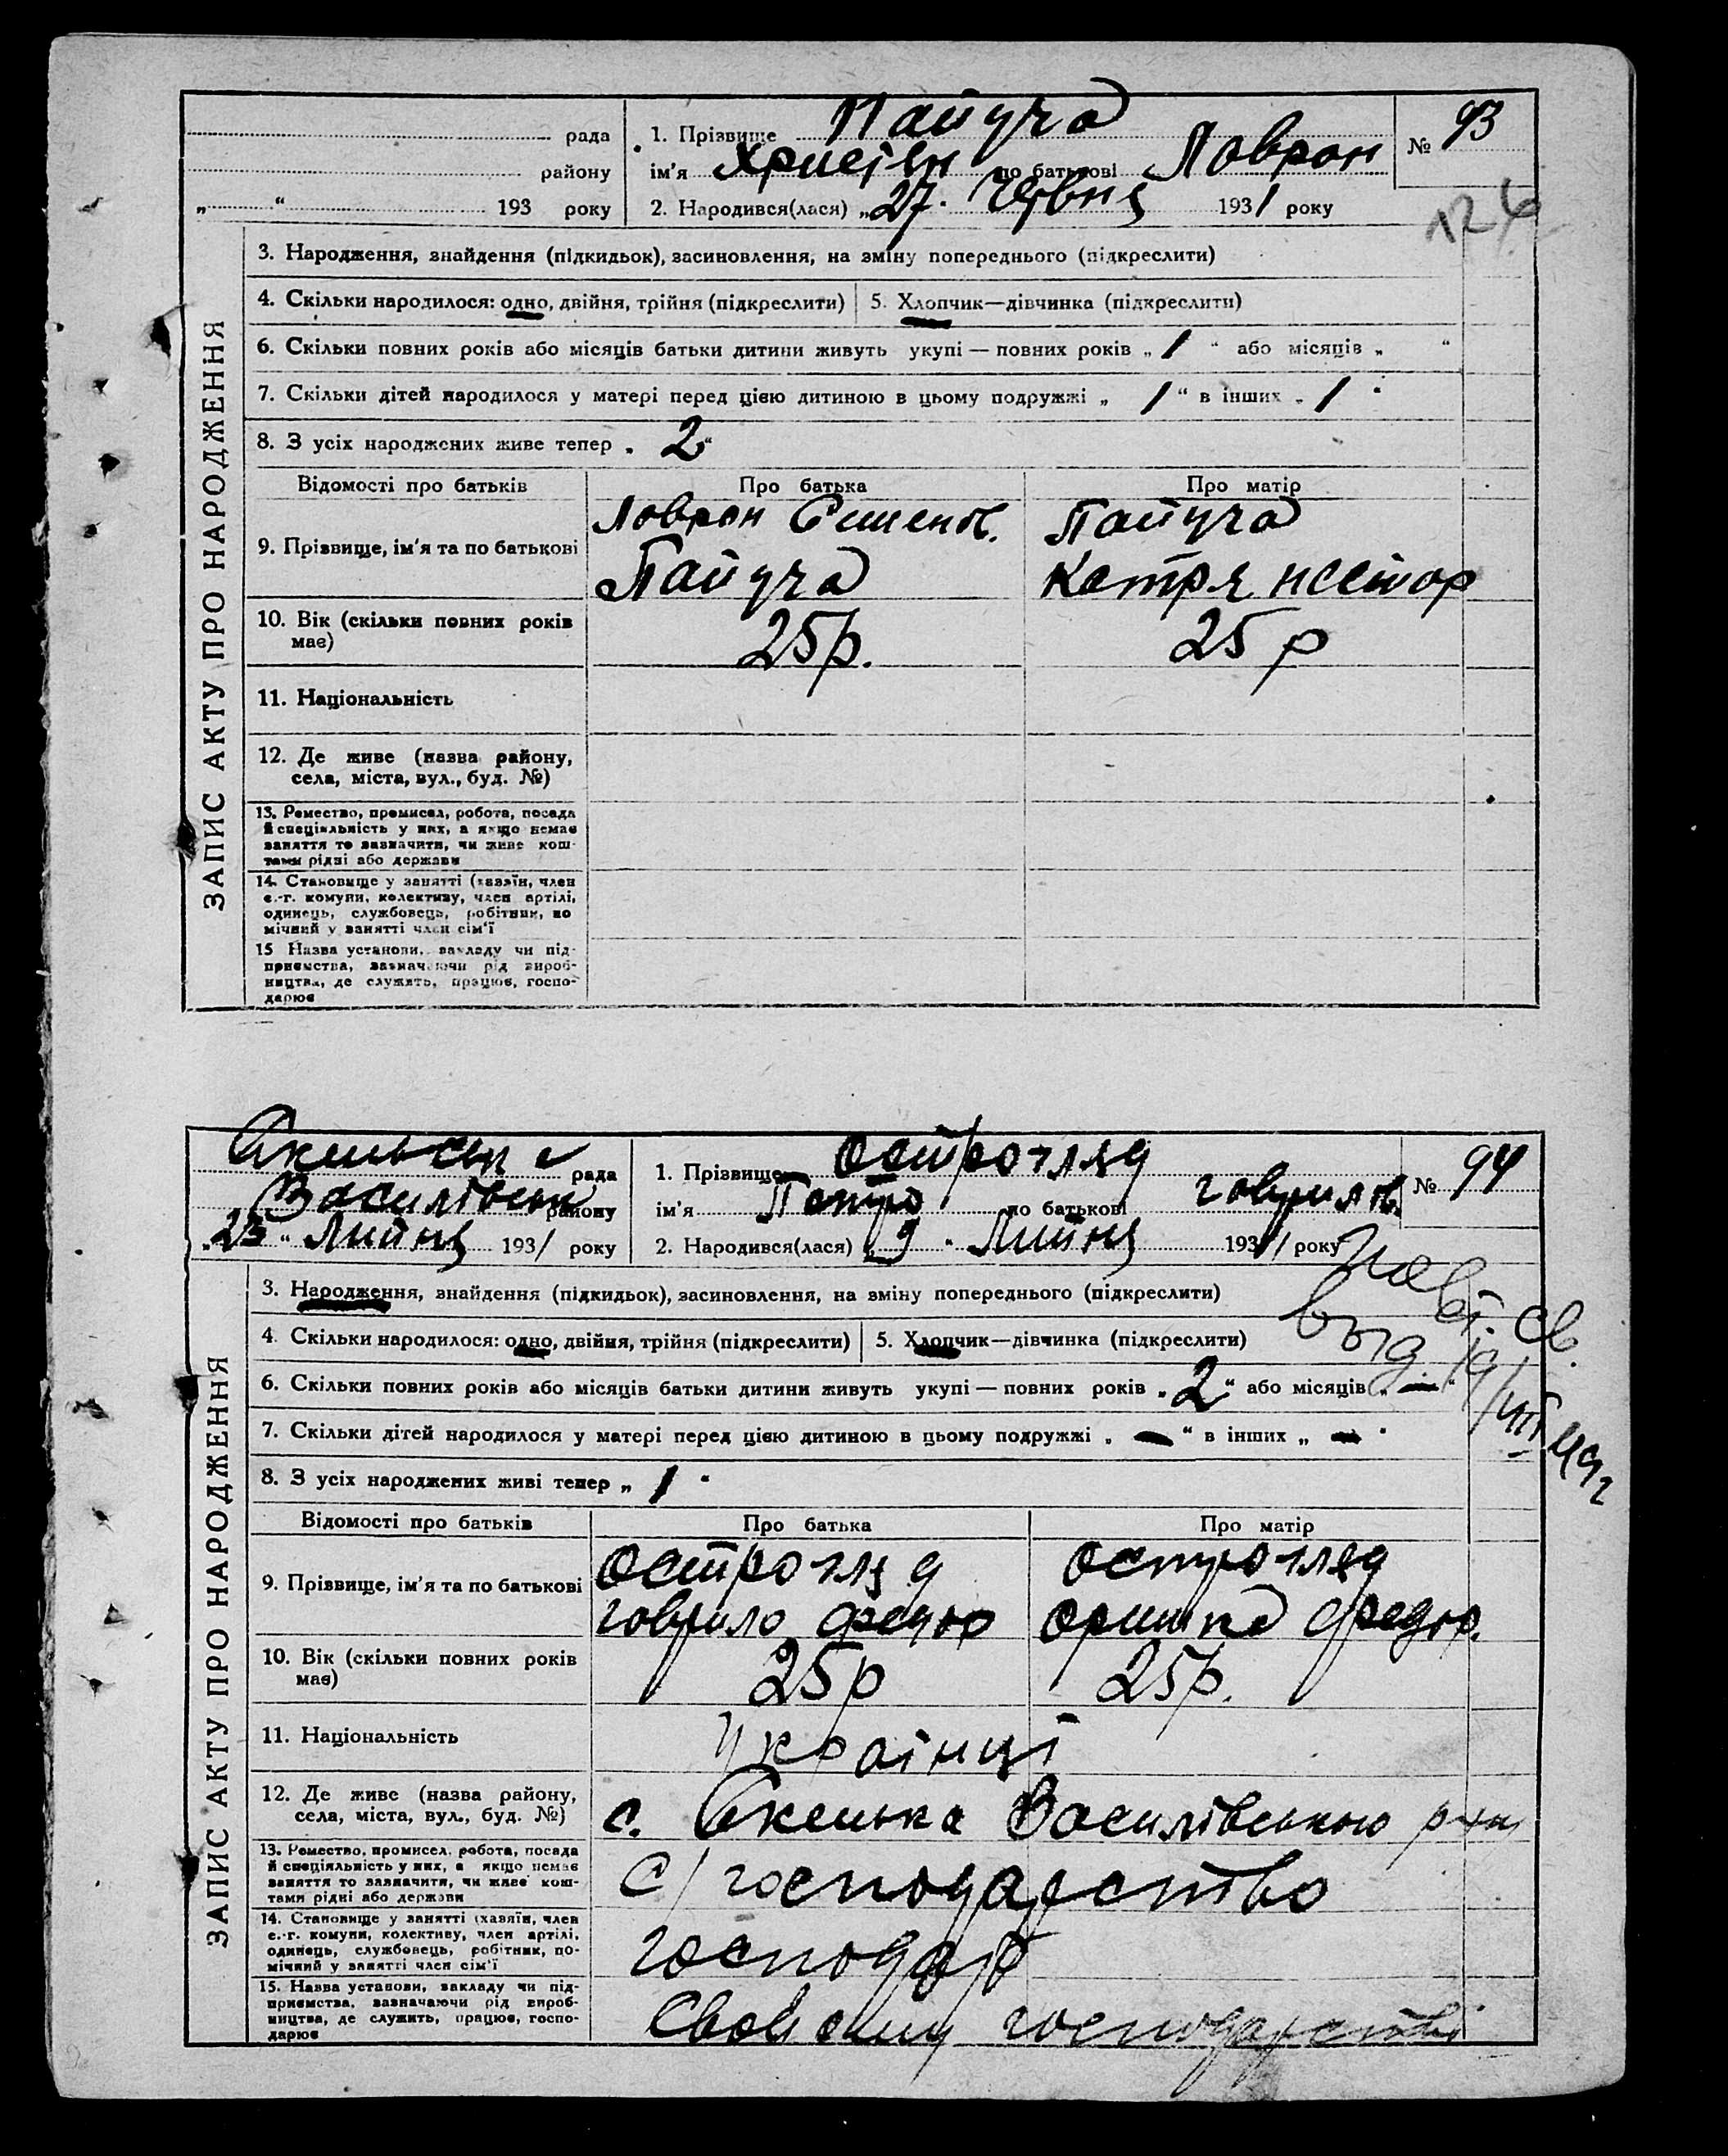 рада
району
„ “ 193 року
1. Прізвище Пайуча
ім'я Христян по батькові Лаврон
2. Народився(лася) „27. Червня 1931 року
№ 93
126
ЗАПИС АКТУ ПРО НАРОДЖЕННЯ
3. Народження, знайдення (підкидьок), засиновлення, на зміну попереднього (підкреслити)
4. Скільки народилося: одно, двійня, трійня (підкреслити) 5. Хлопчик—дівчинка (підкреслити)
6. Скільки повних років або місяців батьки дитини живуть укупі — повних років „ 1 “ або місяців „ “
7. Скільки дітей народилося у матері перед цією дитиною в цьому подружжі „ 1 “ в інших „ 1 “
8. З усіх народжених живе тепер „ 2 “
Відомості про батьків Про батька Про матір
9. Прізвище, ім'я та по батькові
Лаврон Пайуча
Пайуча Катря Нестор
10. Вік (скільки повних років має) 25р. 25 р
11. Національність
12. Де живе (назва району,
села, міста, вул., буд. №)
13. Ремество, промисел, робота, посада
й спеціяльність у них, а якщо немає
заняття то зазначити, чи живе кош-
тами рідні або держави
14. Становище у занятті (хазяїн, член
с.-г. комуни, колективу, член артілі,
одинець, службовець, робітник, по
мічний у занятті член сім'ї
15 Назва установи, закладу чи під-
приємства, зазначаючи рід вироб-
ництва, де служить, працює, госпо-
дарює
рада
Василівськ району
„23 “ Липня 1931 року
1. Прізвище Острогляд
ім'я Петро по батькові Гаврилов.
2. Народився(лася) „ 9 “ Липня 1931 року
№ 94
ЗАПИС АКТУ ПРО НАРОДЖЕННЯ
3. Народження, знайдення (підкидьок), засиновлення, на зміну попереднього (підкреслити)
4. Скільки народилося: одно, двійня, трійня (підкреслити) 5. Хлопчик—дівчинка (підкреслити)
6. Скільки повних років або місяців батьки дитини живуть укупі — повних років „ 2 “ або місяців „ — “
7. Скільки дітей народилося у матері перед цією дитиною в цьому подружжі „ — “ в інших „ — “
8. З усіх народжених живі тепер „ 1 “
Відомості про батьків Про батька Про матір
9. Прізвище, ім'я та по батькові
Острогляд Острогляд
Гаврило Федор Оришка Федор.
10. Вік (скільки повних років має) 25р 25р.
11. Національність Українці
12. Де живе (назва району,
села, міста, вул., буд. №)
с. Скелька Василівського р-ну
13. Ремество, промисел, робота, посада
й спеціяльність у них, а якщо немає
заняття то зазначити, чи живе кош-
тами рідні або держави
С/господарство
14. Становище у занятті (хазяїн, член
с.-г. комуни, колективу, член артілі,
одинець, службовець, робітник, по-
мічний у занятті член сім'ї
господар
15. Назва установи, закладу чи під-
приємства, зазначаючи рід вироб-
ництва, де служить, працює, госпо-
дарює
господарстві